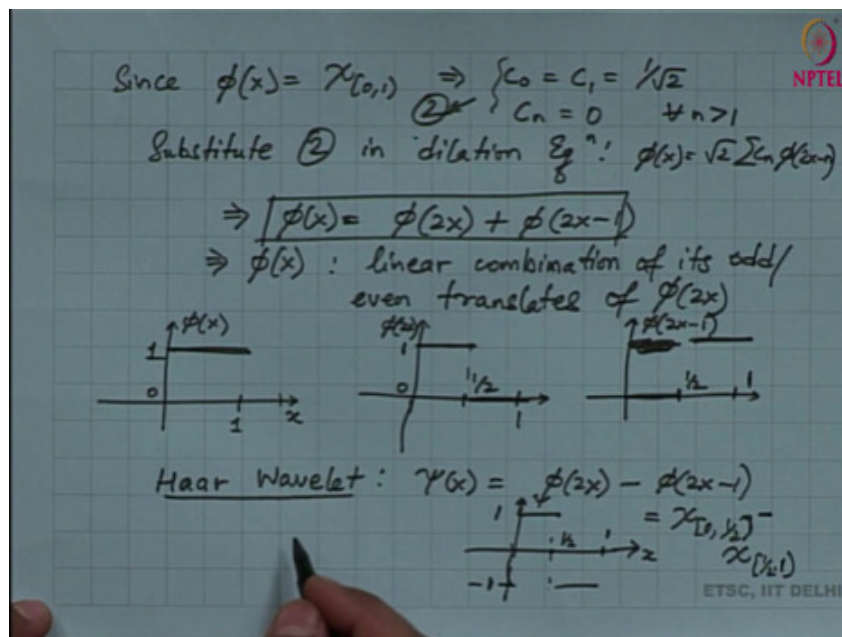 Since φ(x) = χ[0,1) ⇒ { C₀ = C₁ = 1/√2
NPTEL
② Cₙ = 0 ∀ n>1
Substitute ② in dilation Eqⁿ: φ(x) = √2 Σ Cₙ φ(2x-n)
⇒ φ(x) = φ(2x) + φ(2x-1)
⇒ φ(x) : linear combination of its odd/
even translates of φ(2x)
φ(x) φ(2x) φ(2x-1)
1 1
0 0 1/2 1/2 1
1 x 1
Haar Wavelet : ψ(x) = φ(2x) - φ(2x-1)
1 = χ[0,1/2) -
1/2 1 x χ[1/2,1)
-1
ETSC, IIT DELHI